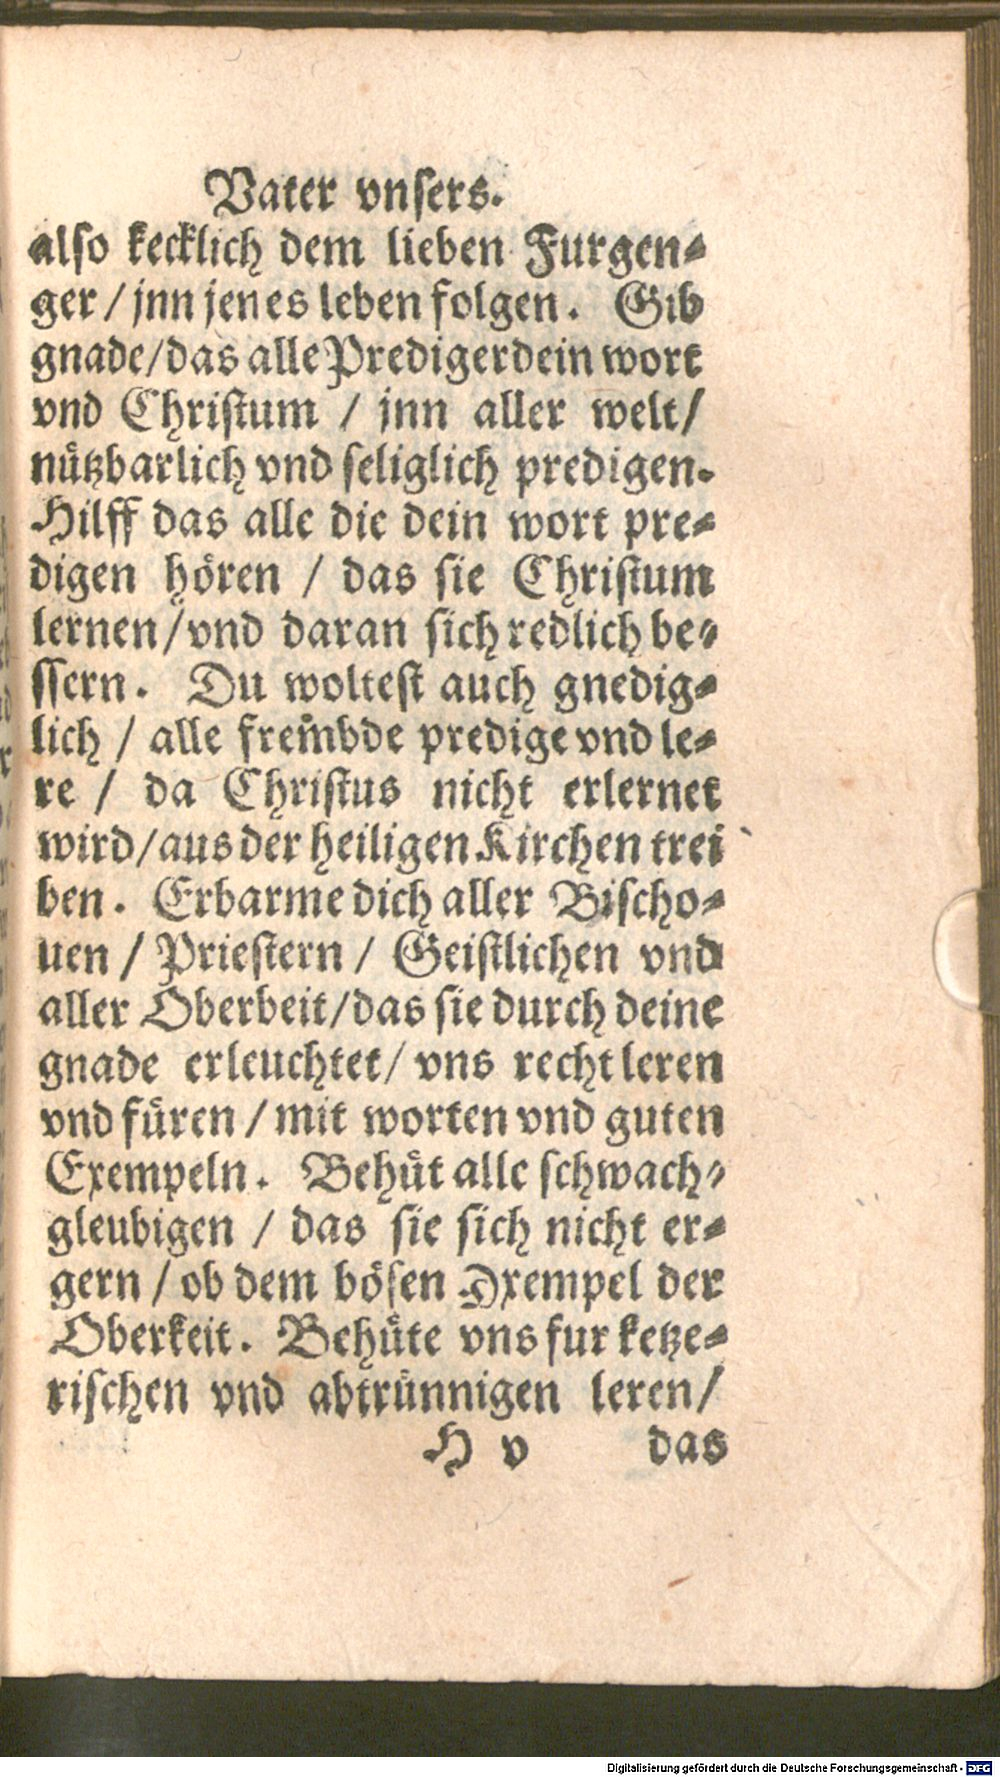 Vater vnsers.
also kecklich dem lieben Furgen⸗
ger / jnn jenes leben folgen. Gib
gnade/das alle Prediger dein wort
vnd Christum / jnn aller welt/
nuͤtzbarlich vnd seliglich predigen.
Hilff das alle die dein wort pre⸗
digen hoͤren / das sie Christum
lernen/vnd daran sich redlich be⸗
ssern. Du woltest auch gnedig⸗
lich / alle frembde predige vnd le⸗
re / da Christus nicht erlernet
wird/aus der heiligen Kirchen trei
ben. Erbarme dich aller Bischo⸗
uen / Priestern / Geistlichen vnd
aller Oberbeit/das sie durch deine
gnade erleuchtet/ vns recht leren
vnd fuͤren / mit worten vnd guten
Exempeln. Behuͤt alle schwach⸗
gleubigen / das sie sich nicht er⸗
gern / ob dem boͤsen Exempel der
Oberkeit. Behuͤte vns fur ketze⸗
rischen vnd abtruͤnnigen leren/
H v das
Digitalisierung gefördert durch die Deutsche Forschungsgemeinschaft - DFG